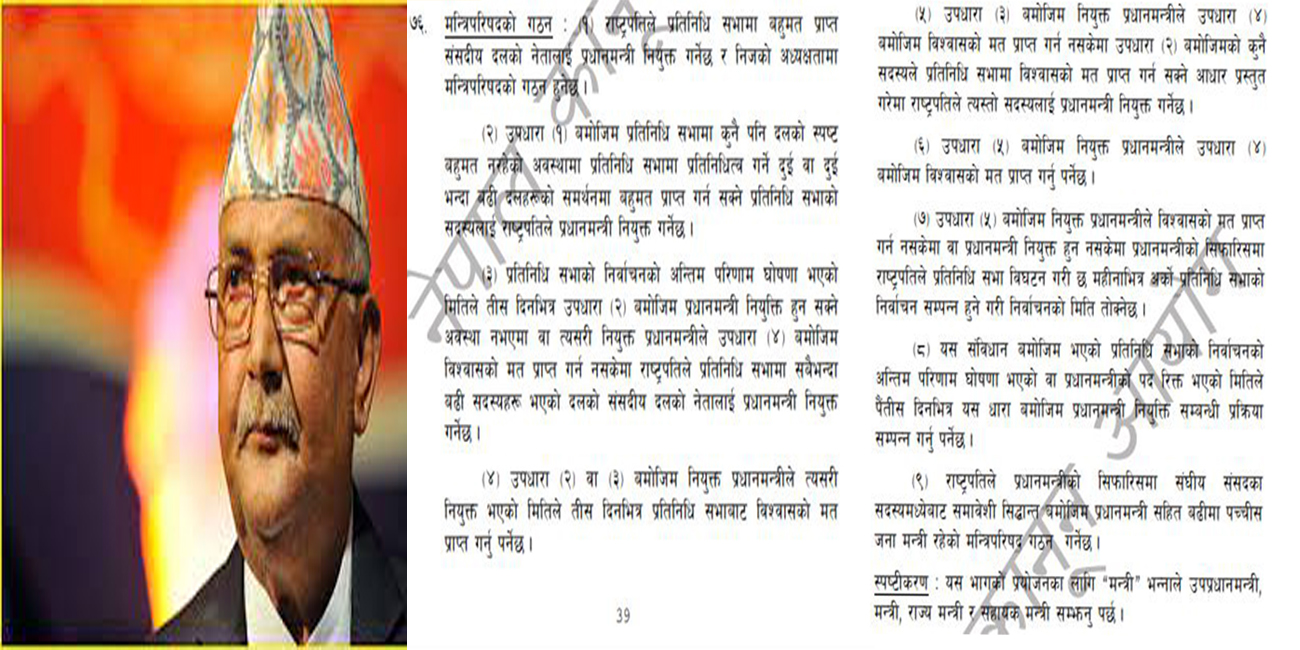 ७६. मन्त्रिपरिषदको गठन : (१) राष्ट्रपतिले प्रतिनिधि सभामा बहुमत प्राप्त
संसदीय दलको नेतालाई प्रधानमन्त्री नियुक्त गर्नेछ र निजको अध्यक्षतामा
मन्त्रिपरिषदको गठन हुनेछ ।
(२) उपधारा (१) बमोजिम प्रतिनिधि सभामा कुनै पनि दलको स्पष्ट
बहुमत नरहेको अवस्थामा प्रतिनिधि सभामा प्रतिनिधित्व गर्ने दुई वा दुई
भन्दा बढी दलहरूको समर्थनमा बहुमत प्राप्त गर्न सक्ने प्रतिनिधि सभाको
सदस्यलाई राष्ट्रपतिले प्रधानमन्त्री नियुक्त गर्नेछ ।
(३) प्रतिनिधि सभाको निर्वाचनको अन्तिम परिणाम घोषणा भएको
मितिले तीस दिनभित्र उपधारा (२) बमोजिम प्रधानमन्त्री नियुक्ति हुन सक्ने
अवस्था नभएमा वा त्यसरी नियुक्त प्रधानमन्त्रीले उपधारा (४) बमोजिम
विश्वासको मत प्राप्त गर्न नसकेमा राष्ट्रपतिले प्रतिनिधि सभामा सबैभन्दा
बढी सदस्यहरू भएको दलको संसदीय दलको नेतालाई प्रधानमन्त्री नियुक्त
गर्नेछ ।
(४) उपधारा (२) वा (३) बमोजिम नियुक्त प्रधानमन्त्रीले त्यसरी
नियुक्त भएको मितिले तीस दिनभित्र प्रतिनिधि सभाबाट विश्वासको मत
प्राप्त गर्नु पर्नेछ ।
39
(५) उपधारा (३) बमोजिम नियुक्त प्रधानमन्त्रीले उपधारा (४)
बमोजिम विश्वासको मत प्राप्त गर्न नसकेमा उपधारा (२) बमोजिमको कुनै
सदस्यले प्रतिनिधि सभामा विश्वासको मत प्राप्त गर्न सक्ने आधार प्रस्तुत
गरेमा राष्ट्रपतिले त्यस्तो सदस्यलाई प्रधानमन्त्री नियुक्त गर्नेछ ।
(६) उपधारा (५) बमोजिम नियुक्त प्रधानमन्त्रीले उपधारा (४)
बमोजिम विश्वासको मत प्राप्त गर्नु पर्नेछ ।
(७) उपधारा (५) बमोजिम नियुक्त प्रधानमन्त्रीले विश्वासको मत प्राप्त
गर्न नसकेमा वा प्रधानमन्त्री नियुक्त हुन नसकेमा प्रधानमन्त्रीको सिफारिसमा
राष्ट्रपतिले प्रतिनिधि सभा विघटन गरी छ महीनाभित्र अर्को प्रतिनिधि सभाको
निर्वाचन सम्पन्न हुने गरी निर्वाचनको मिति तोक्नेछ ।
(८) यस संविधान बमोजिम भएको प्रतिनिधि सभाको निर्वाचनको
अन्तिम परिणाम घोषणा भएको वा प्रधानमन्त्रीको पद रिक्त भएको मितिले
पैंतीस दिनभित्र यस धारा बमोजिम प्रधानमन्त्री नियुक्ति सम्बन्धी प्रक्रिया
सम्पन्न गर्नु पर्नेछ ।
(९) राष्ट्रपतिले प्रधानमन्त्रीको सिफारिसमा संघीय संसदका
सदस्यमध्येबाट समावेशी सिद्धान्त बमोजिम प्रधानमन्त्री सहित बढीमा पच्चीस
जना मन्त्री रहेको मन्त्रिपरिषद गठन गर्नेछ ।
स्पष्टीकरण : यस भागको प्रयोजनका लागि “मन्त्री” भन्नाले उपप्रधानमन्त्री,
मन्त्री, राज्य मन्त्री र सहायक मन्त्री सम्झनु पर्छ ।
नेपाल कानून
कानून आयोग